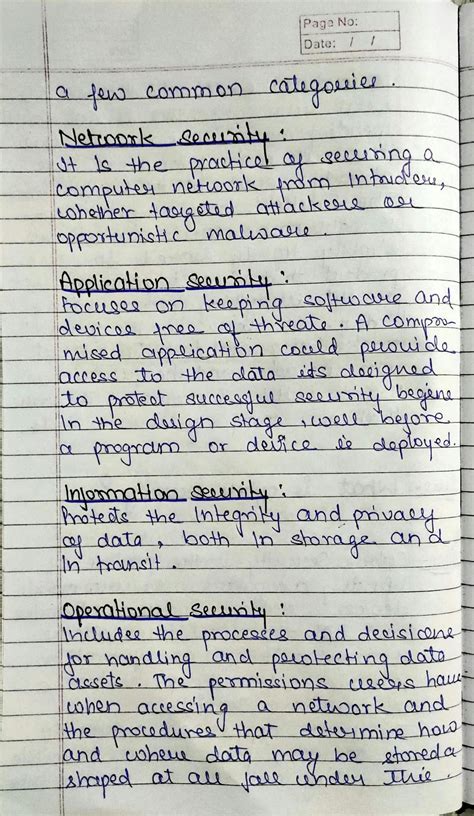 Page No:
Date: / /
a few common categories.
Network security:
It Is the practice of securing a
computer network from Intruders,
whether targeted attackers or
opportunistic malware.
Application security:
Focuses on keeping software and
devices free of threats. A compro
mised application could provide
access to the data its designed
to protect successful security begins
In the design stage, well before
a program or device is deployed.
Information security:
Protects the Integrity and privacy
of data, both In storage and
In transit.
Operational security:
Includes the processes and decisions
for handling and protecting data
assets. The permissions users have
when accessing a network and
the procedures that determine how
and where data may be stored
shaped at all fall under This.